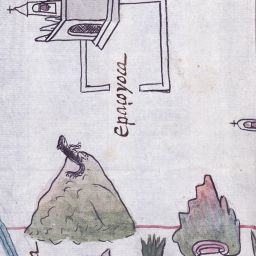 Epaçoyoca